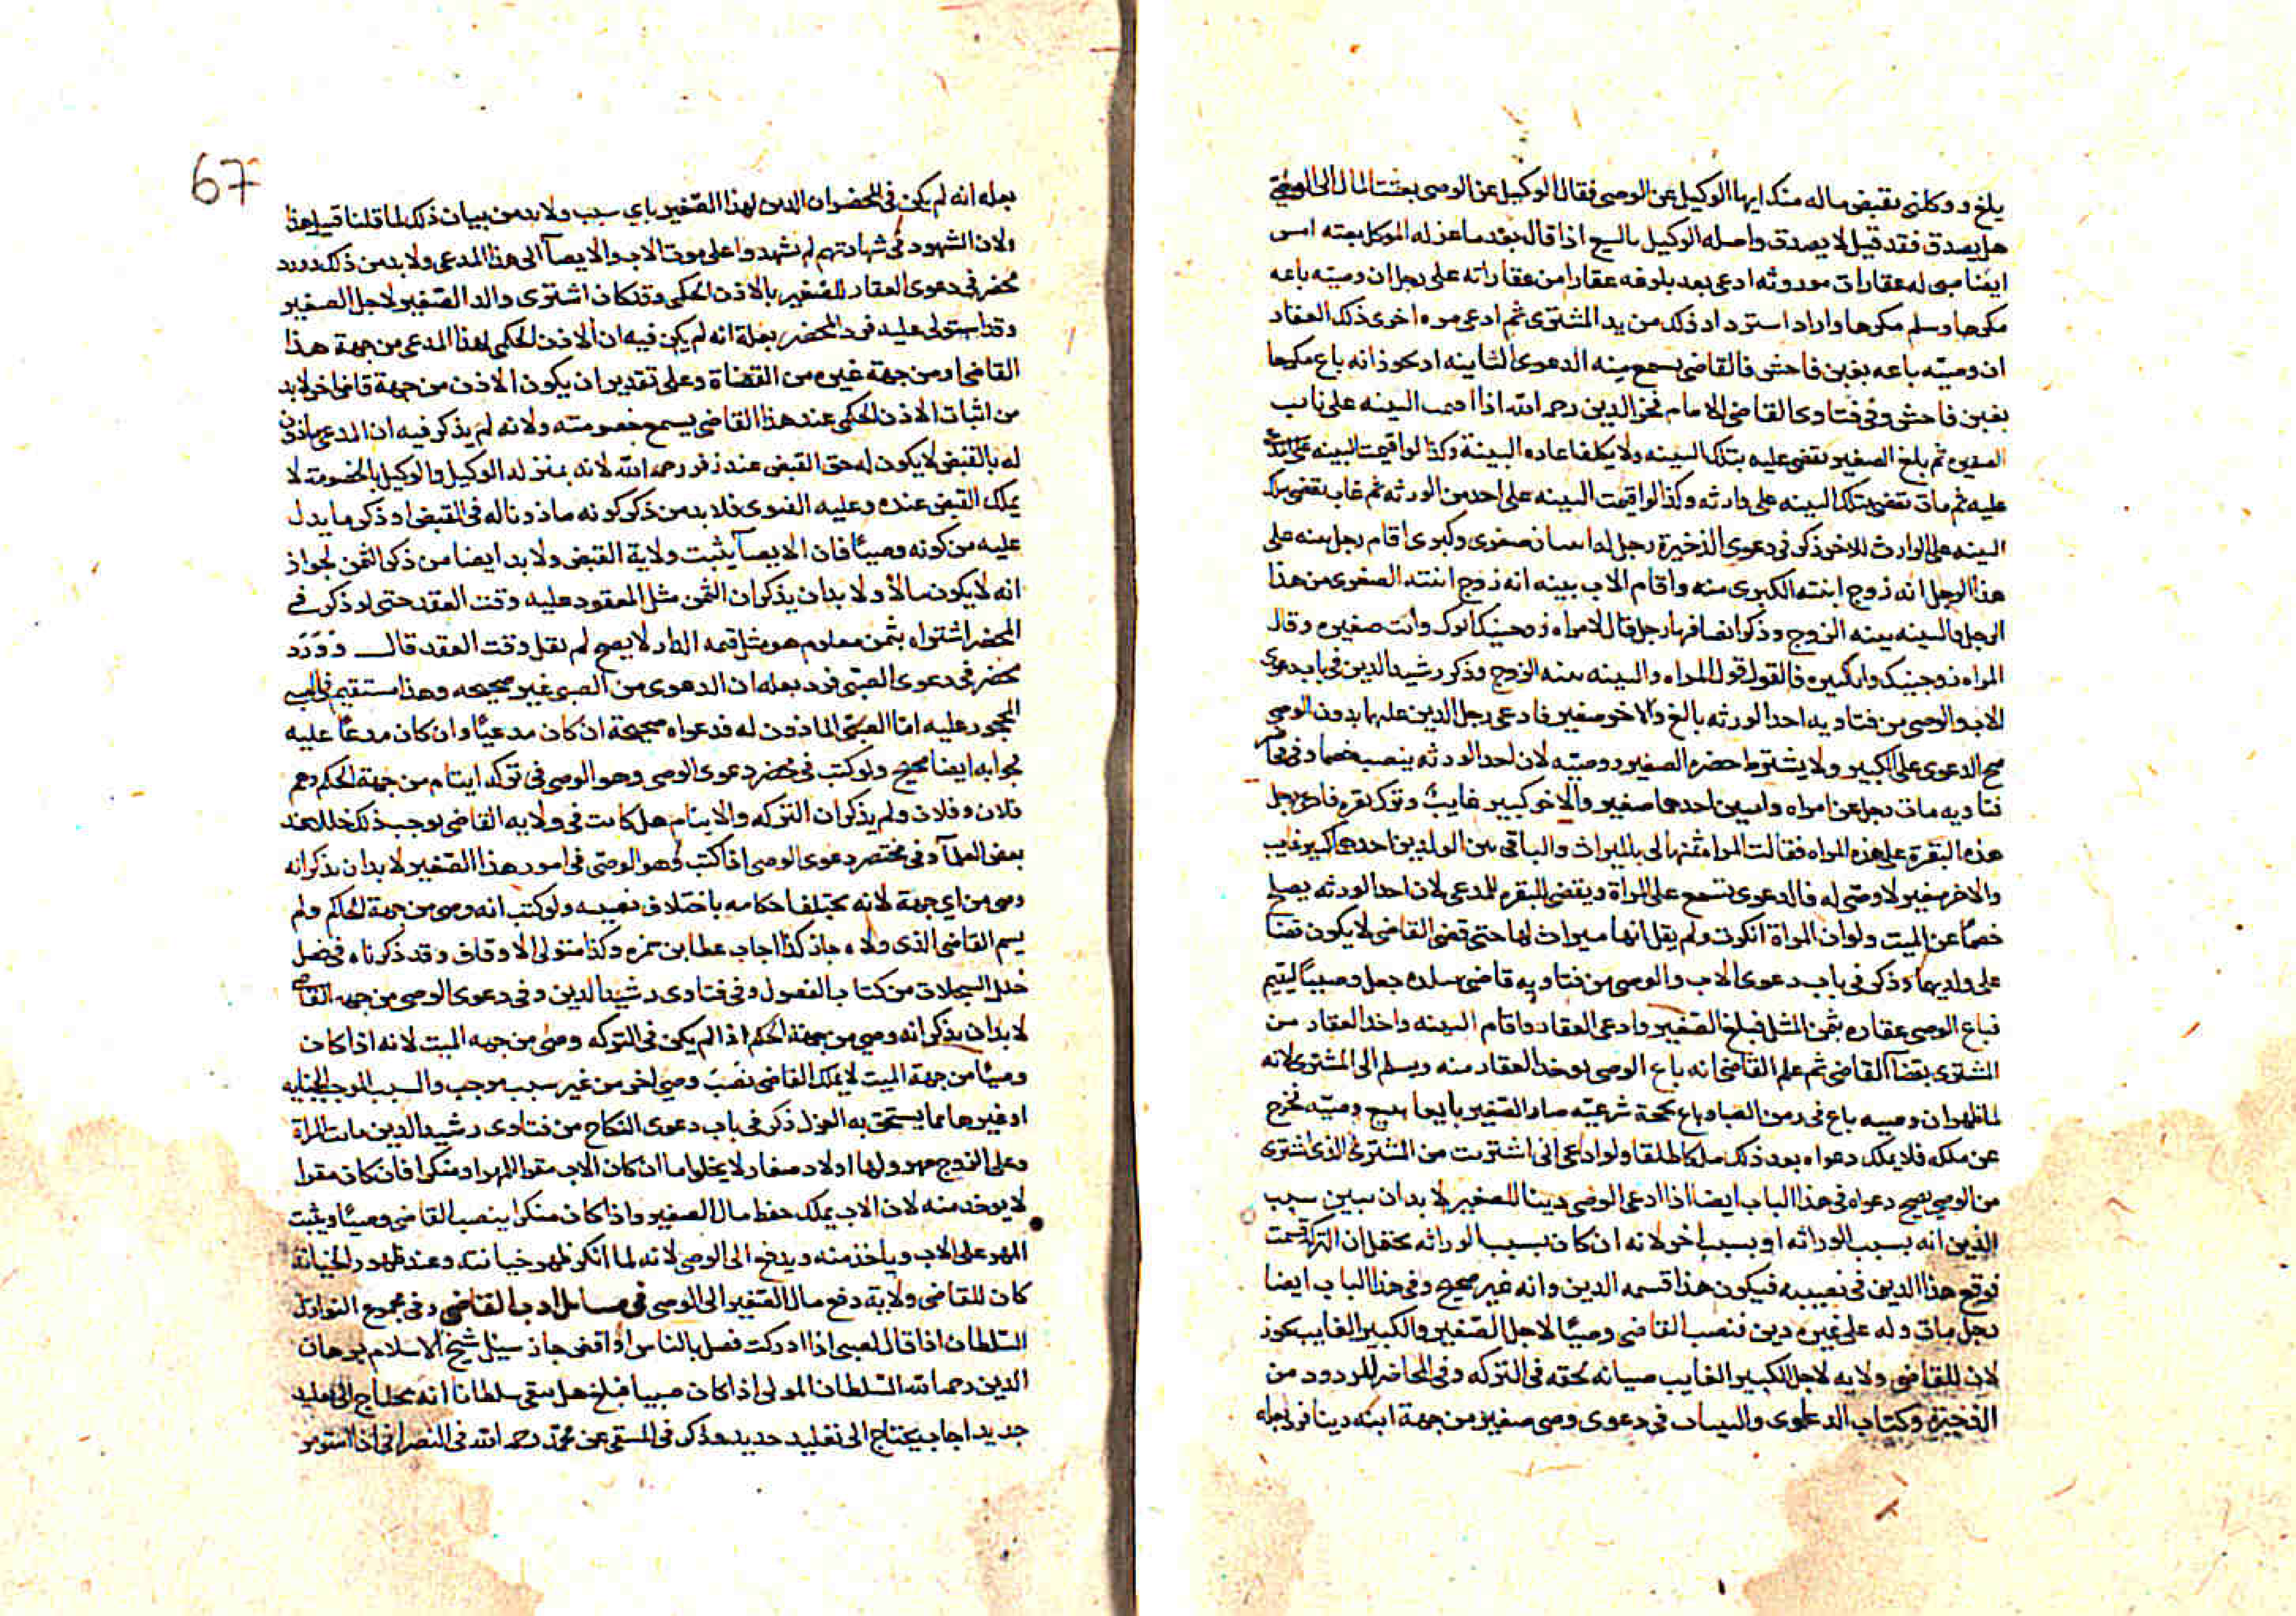 بلغ ووكلني بقبض ماله منك ايها الوكيل عن الوصي فقال الوكيل عن الوصي بعثت المال الى الوصي
هل يصدق فقد قيل لا يصدق واصله الوكيل بالبيع اذا قال بعد ما عزله الموكل بعته امس
ايضا صبي له عقارات موروثه ادعى بعد بلوغه عقارا من عقاراته على رجل ان وصيه باعه
مكرها وسلم مكرها واراد استرداد ذلك من يد المشتري ثم ادعى مره اخرى ذلك العقار
ان وصيه باعه بغبن فاحش فالقاضي يسمع منه الدعوى الثانيه اذ يجوز انه باع مكرها
بغبن فاحش وفي فتاوى القاضي الامام فخر الدين رحمه الله اذا اقيمت البينه على نايب
الصغير ثم بلغ الصغير يقضى عليه بتلك البينه ولا يكلف اعاده البينة وكذا لو اقيمت البينه على المدعى
عليه ثم مات يقضى بتلك البينه على وارثه وكذا لو اقيمت البينه على احد من الورثه ثم غاب يقضى بتلك
البينه على الوارث للاخر ذكر في دعوى الذخيرة رجل له ابنتان صغرى وكبرى اقام رجل بينه على
هذا الرجل انه زوج ابنته الكبرى منه واقام الاب بينه انه زوج ابنته الصغرى من هذا
الرجل فالبينه بينه الزوج وذكر ايضا فيها رجل قال لامراه زوجنيك ابوك وانت صغيره وقالت
المراه زوجنيك وانا كبيره فالقول قول المراه والبينه بينه الزوج وذكر رشيد الدين في باب دعوى
الاب والوصي من فتاويه احد الورثه بالغ والاخر صغير فادعى رجل الدين عليهما بدون الوصي
صح الدعوى على الكبير ولا يشترط حضره الصغير ووصيه لان احد الورثه ينصب خصما وفي
فتاويه مات رجل عن امراه وابنين احدهما صغير والاخر كبير غايب وترك بقره فادعى رجل
هذه البقرة على هذه المراه فقالت المراه ثمنها لي بالميراث والباقي بين الولدين احدهما كبير غايب
والاخر صغير لا وصي له فالدعوى تسمع على المراة ويقضى بالبقره للمدعي لان احد الورثه يصلح
خصما عن الميت ولو ان المراة انكرت ولم يقل انها ميراث لها حتى قضى القاضي لا يكون قضا
على ولديها وذكر في باب دعوى الاب والوصي من فتاويه قاضي بلده جعل وصيا ليتيم
فباع الوصي عقاره بثمن المثل فبلغ الصغير وادعى العقار واقام البينه واخذ العقار من
المشتري بقضا القاضي ثم علم القاضي انه باع الوصي يوخذ العقار منه ويسلم الى المشتري لانه
لما ظهر ان وصيه باع في زمن الصبا وباع بحجة شرعيه صار الصغير بايعا ببيع وصيه فخرج
عن ملكه فلا يملك دعواه بعد ذلك ملكا مطلقا ولو ادعى اني اشتريت من المشتري الذي اشترى
من الوصي يصح دعواه في هذا الباب ايضا اذا ادعى الوصي دينا للصغير لا بد ان يبين سبب
الدين انه بسبب الوراثه او بسبب اخر لانه ان كان بسبب الوراثه يحتمل ان التركة قسمت
فوقع هذا الدين في نصيبه فيكون هذا قسمه الدين وانه غير صحيح وفي هذا الباب ايضا
رجل مات وله على غيره دين فنصب القاضي وصيا لاجل الصغير والكبير الغايب يجوز
لان للقاضي ولايه لاجل الكبير الغايب صيانه لحقه في التركه وفي المحاضر المردود من
الذخيرة وكتاب الدعاوى والبينات في دعوى وصي صغير من جهة ابنه دينا فرد بعله
بعله انه لم يكن في المحضر ان الدين لهذا الصغير باي سبب ولا بد من بيان ذلك لما قلنا قبيل هذا
ولان الشهود في شهادتهم لم يشهدوا على موت الاب والايصا الى هذا المدعي ولا بد من ذلك وورد
محضر في دعوى العقار للصغير بالاذن الحكمي وقد كان اشترى والد الصغير لاجل الصغير
وقد استولى عليه فرد المحضر بعلة انه لم يكن فيه ان الاذن الحكمي لهذا المدعي من جهة هذا
القاضي او من جهة غيره من القضاة وعلى تقدير ان يكون الاذن من جهة قاض اخر لا بد
من اثبات الاذن الحكمي عند هذا القاضي يسمع خصومته ولانه لم يذكر فيه ان المدعي ماذون
له بالقبض لا يكون له حق القبض عند زفر رحمه الله لانه بمنزله الوكيل والوكيل بالخصومة لا
يملك القبض عنده وعليه الفتوى فلا بد من ذكر كونه ماذونا له في القبض او ذكر ما يدل
عليه من كونه وصيا فان الايصا يثبت ولاية القبض ولا بد ايضا من ذكر الثمن لجواز
انه لا يكون مالا ولا بد ان يذكر ان الثمن مثل المعقود عليه وقت العقد حتى لو ذكر في
المحضر اشتراه بثمن معلوم هو مثل قيمه الدار لا يصح لم يقل وقت العقد قال وورد
محضر في دعوى الصبي فرد بعله ان الدعوى من الصبي غير صحيحه وهذا مستقيم في الصبي
المحجور عليه اما الصبي الماذون له فدعواه صحيحة ان كان مدعيا وان كان مدعا عليه
فجوابه ايضا صحيح ولو كتب في محضر دعوى الوصي وهو الوصي في تركه ايتام من جهة الحكم وهم
فلان وفلان ولم يذكر ان التركه والايتام هل كانت في ولايه القاضي يوجب ذلك خللا عند
بعض العلمآ وفي مختصر دعوى الوصي اذا كتب وهو الوصي في امور هذا الصغير لا بد ان يذكر انه
وصي من اي جهة لانه يختلف احكامه باختلاف نصيبه ولو كتب انه وصي من جهة الحكم ولم
يسم القاضي الذي ولاه جاز كذا اجاب عطا بن حمزه وكذا متولي الاوقاف وقد ذكرناه في فصل
خلل السجلات من كتاب الفصول وفي فتاوى رشيد الدين وفي دعوى الوصي من جهه القاضي
لا بد ان يذكر انه وصي من جهة الحكم اذا لم يكن في التركه وصي من جهه الميت لانه اذا كان
وصيا من جهة الميت لا يملك القاضي نصب وصي اخر من غير سبب موجب والسبب الموجب الجنايه
او غيرها مما يستحق به العزل ذكر في باب دعوى النكاح من فتاوى رشيد الدين ماتت المراة
وعلى الزوج مهر ولها اولاد صغار لا يخلوا ما ان كان الاب مقرا المهر او منكرا فان كان مقرا
لا يوخذ منه لان الاب يملك حفظ مال الصغير واذا كان منكرا ينصب القاضي وصيا ويثبت
المهر على الاب وياخذ منه ويدفع الى الوصي لانه لما انكر ظهر خيانته وعند ظهور الخيانة
كان للقاضي ولاية دفع مال الصغير الى الوصي في مسايل ادب القاضي وفي مجموع النوازل
السلطان اذا قال لصبي اذا ادركت فصل بالناس او اقض جاز سيل شيخ الاسلام برهان
الدين رحمه الله السلطان المولى اذا كان صبيا فبلغ هل يبقى سلطانا انه يحتاج الى تقليد
جديد اجاب يحتاج الى تقليد جديد وذكر في المنتقى عن محمد رحمه الله في النصراني اذا استوم
67